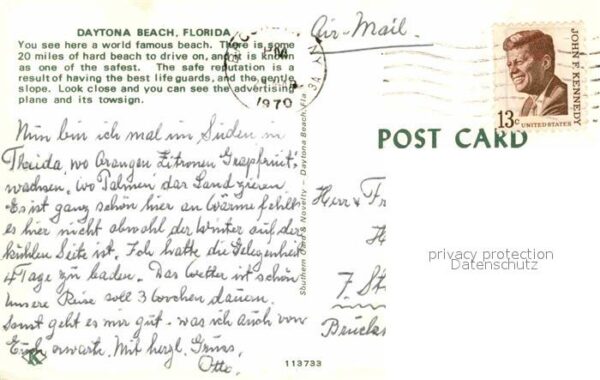 DAYTONA BEACH, FLORIDA
You see here a world famous beach. There is some
20 miles of hard beach to drive on, and it is known
as one of the safest. The safe reputation is a
result of having the best life guards, and the gentle
slope. Look close and you can see the advertising
plane and its towsign.
Air-Mail.
NY
PM
1970
JOHN F. KENNEDY
13c UNITED STATES
POST CARD
Nun bin ich mal im Süden in
Florida, wo Orangen Zitronen Grapfruit
wachsen. Wo Palmen das Land zieren.
Es ist ganz schön hier an Wärme fehlts
es hier nicht obwohl der Winter auf der
kühlen Seite ist. Ich hatte die Gelegenheit
4 Tage zu baden. Das Wetter ist schön
Unsere Reise soll 3 Wochen dauern.
Sonst geht es mir gut - was ich auch von
Euch erwarte. Mit herzl. Grüss.
Otto.
K
Southern Card & Novelty - Daytona Beach, Fla
Herr & Fr
H
7. St
Brucks
privacy protection
Datenschutz
113733